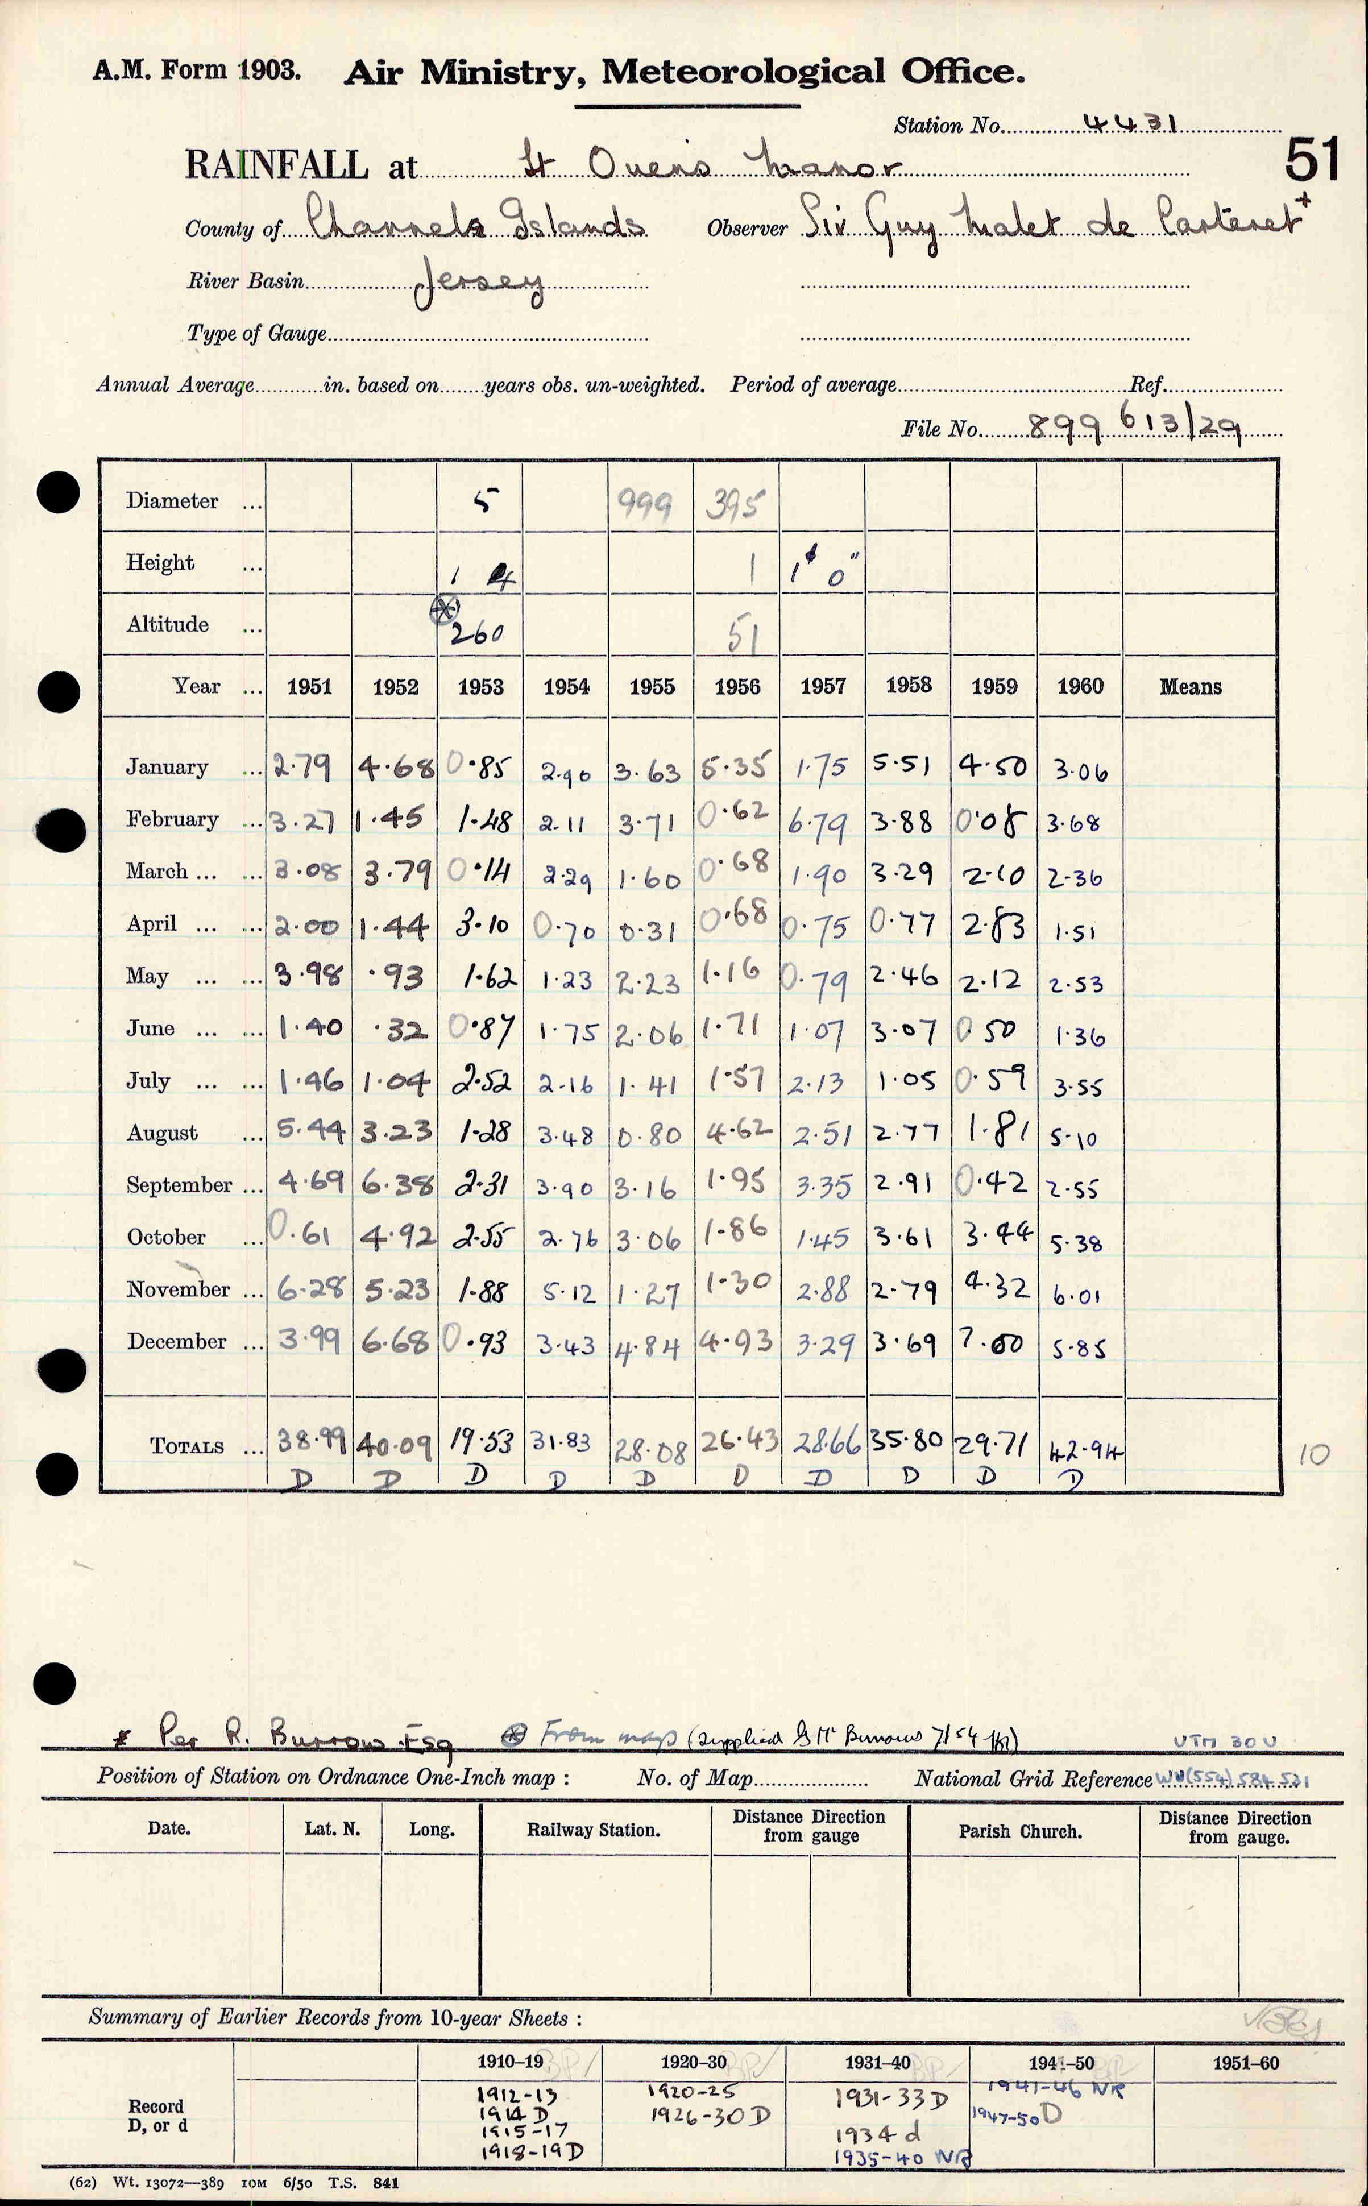 A.M. Form 1903. Air Ministry, Meteorological Office.
Station No. 4431
51
RAINFALL at St Ouens Manor
County of Channel Islands Observer Sir Guy Malet de Carteret +
River Basin Jersey
Type of Gauge
Annual Average in. based on years obs. un-weighted. Period of average Ref.
File No. 899 613/29
Diameter ... 5 999 395
Height ... 1 4 1 1' 0"
Altitude ... 260 51
Year ... 1951 1952 1953 1954 1955 1956 1957 1958 1959 1960 Means
January ... 2.79 4.68 0.85 2.90 3.63 5.35 1.75 5.51 4.50 3.06
February ... 3.27 1.45 1.48 2.11 3.71 0.62 6.79 3.88 0.08 3.68
March ... ... 3.08 3.79 0.14 2.29 1.60 0.68 1.90 3.29 2.10 2.36
April ... ... 2.00 1.44 3.10 0.70 0.31 0.68 0.75 0.77 2.83 1.51
May ... ... 3.98 .93 1.62 1.23 2.23 1.16 0.79 2.46 2.12 2.53
June ... ... 1.40 .32 0.87 1.75 2.06 1.71 1.07 3.07 0.50 1.36
July ... ... 1.46 1.04 2.52 2.16 1.41 1.57 2.13 1.05 0.59 3.55
August ... 5.44 3.23 1.28 3.48 0.80 4.62 2.51 2.77 1.81 5.10
September ... 4.69 6.38 2.31 3.90 3.16 1.95 3.35 2.91 0.42 2.55
October ... 0.61 4.92 2.55 2.76 3.06 1.86 1.45 3.61 3.44 5.38
November ... 6.28 5.23 1.88 5.12 1.27 1.30 2.88 2.79 4.32 6.01
December ... 3.99 6.68 0.93 3.43 4.84 4.93 3.29 3.69 7.00 5.85
TOTALS ... 38.99 40.09 19.53 31.83 28.08 26.43 28.66 35.80 29.71 42.94
10
D D D D D D D D D D
Per R. Burrow Esq From map (supplied by Mr Burrows 7/54)
UTM 30U
Position of Station on Ordnance One-Inch map : No. of Map National Grid Reference WV(554) 584 531
Date. Lat. N. Long. Railway Station. Distance from gauge Direction Parish Church. Distance from gauge. Direction
Summary of Earlier Records from 10-year Sheets :
1910–19 1920–30 1931–40 1941–50 1951–60
Record D, or d
1912-13 1920-25 1931-33 D 1941-46 NR
1914 D 1926-30 D 1934 d 1947-50 D
1915-17 1935-40 NR
1918-19 D
(62) Wt. 13072—389 10M 6/50 T.S. 841